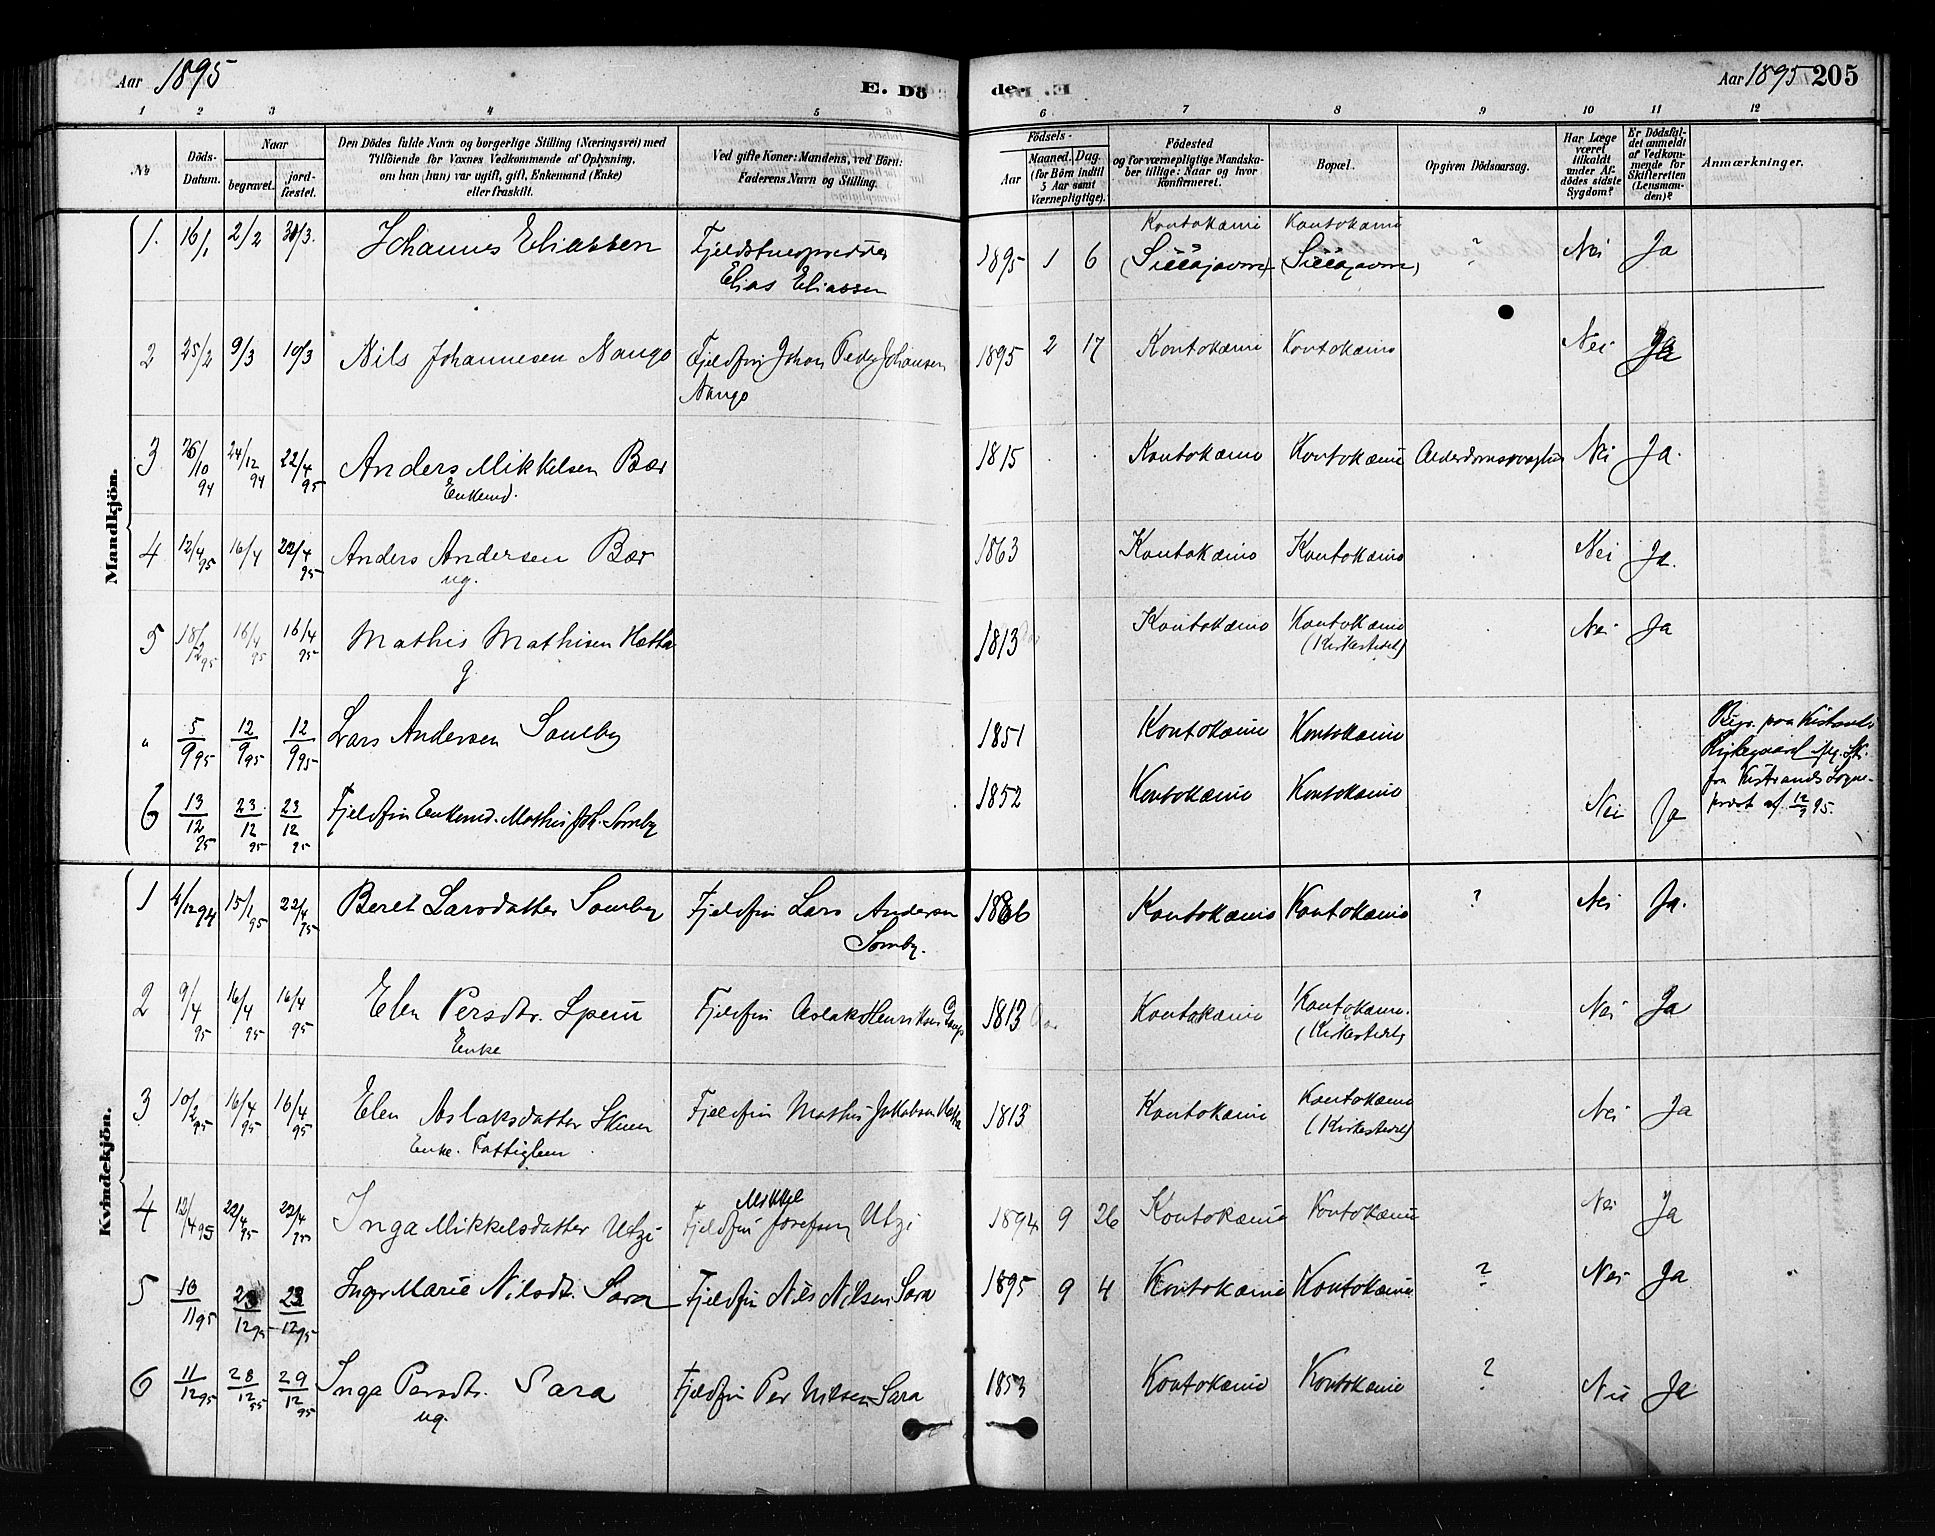 Aar 1895
E. Dö
de.
Aar 1895 205
1 2 3 4 5 6 7 8 9 10 11 12
No
Döds-Datum.
Naar
begravet.
jord-fæstet.
Den Dödes fulde Navn og borgerlige Stilling (Næringsvei) med
Tilföiende for Voxnes Vedkommende af Oplysning,
om han (hun) var ugift, gift, Enkemand (Enke)
eller fraskilt.
Ved gifte Koner: Mandens, ved Börn:
Faderens Navn og Stilling.
Födsels-
Aar
Maaned. Dag.
(for Börn indtil
5 Aar samt
Værnepligtige).
Födested
og for værnepligtige Mandska-
ber tillige: Naar og hvor
Konfirmeret.
Bopæl.
Opgiven Dödsaarsag.
Har Læge
været
tilkaldt
under Af-
dödes sidste
Sygdom?
Er Dödsfal-
det anmeldt
af Vedkom-
mende for
Skifteretten
(Lensman-
den)?
Anmærkninger.
Mandkjön.
1. 16/1 2/2 31/3. Johannes Eliassen Fjeldstueopsidder 1895 1 6 Kontokæino Kontokæino ? Nei Ja
Elias Eliassen (Siccajavrre) (Siccajavrre)
2 25/2 9/3 10/3 Nils Johannesen Nango Fjeldfin Johan Peder Johansen 1895 2 17 Kontokæino Kontokæino Nei Ja
Nango
3 26/10 94 24/12 94 22/4 95 Anders Mikkelsen Bær 1815 Kontokæino Kontokæino Alderdomssvaghed Nei Ja.
Enkemd.
4 12/4 95 16/4 22/4 95 Anders Andersen Bær 1863 Kontokæino Kontokæino Nei Ja.
ug.
5 18/12 95 16/4 95 16/4 95 Mathis Mathisen Hætta 1813 Kontokæino Kontokæino Nei Ja
g (Kirkestedet)
" 5/9 95 12/9 95 12/9 95 Lars Andersen Somby 1851 Kontokæino Kontokæino Begr. paa Kistrands
Kirkegaard
fra Kistrands Sogne-
prest af 12/9 95.
6 13/12 95 23/12 95 23/12 95 Fjeldfin Enkemd. Mathis Joh. Somby 1852 Kontokæino Kontokæino Nei Ja
Kvindekjön.
1 4/12 94 15/1 95 22/4 95 Beret Larsdatter Somby Fjeldfin Lars Andersen 1886 Kontokæino Kontokæino ? Nei Ja.
Somby.
2 9/4 95 16/4 95 16/4 95 Elen Persdtr. Spein Fjeldfin Aslak Henriksen 1813 Kontokæino Kontokæino. Nei Ja
Enke (Kirkestedet)
3 10/2 95 16/4 95 16/4 95 Elen Aslaksdatter Skum Fjeldfin Mathis Jakobsen Hætta 1813 Kontokæino Kontokæino Nei Ja
Enke. Fattiglem (Kirkestedet)
4 12/4 95 22/4 95 22/4 95 Inga Mikkelsdatter Utzi Fjeldfin Mikkel Josefsen Utzi 1894 9 26 Kontokæino Kontokæino Nei Ja
5 10/11 95 23/12 95 23/12 95 Inger Marie Nilsdt. Sara Fjeldfin Nils Nilsen Sara 1895 9 4 Kontokæino Kontokæino ? Nei Ja
6 11/12 95 28/12 95 29/12 95 Inga Persdtr. Sara Fjeldfin Per Nilsen Sara 1853 Kontokæino Kontokæino ? Nei Ja
ug.